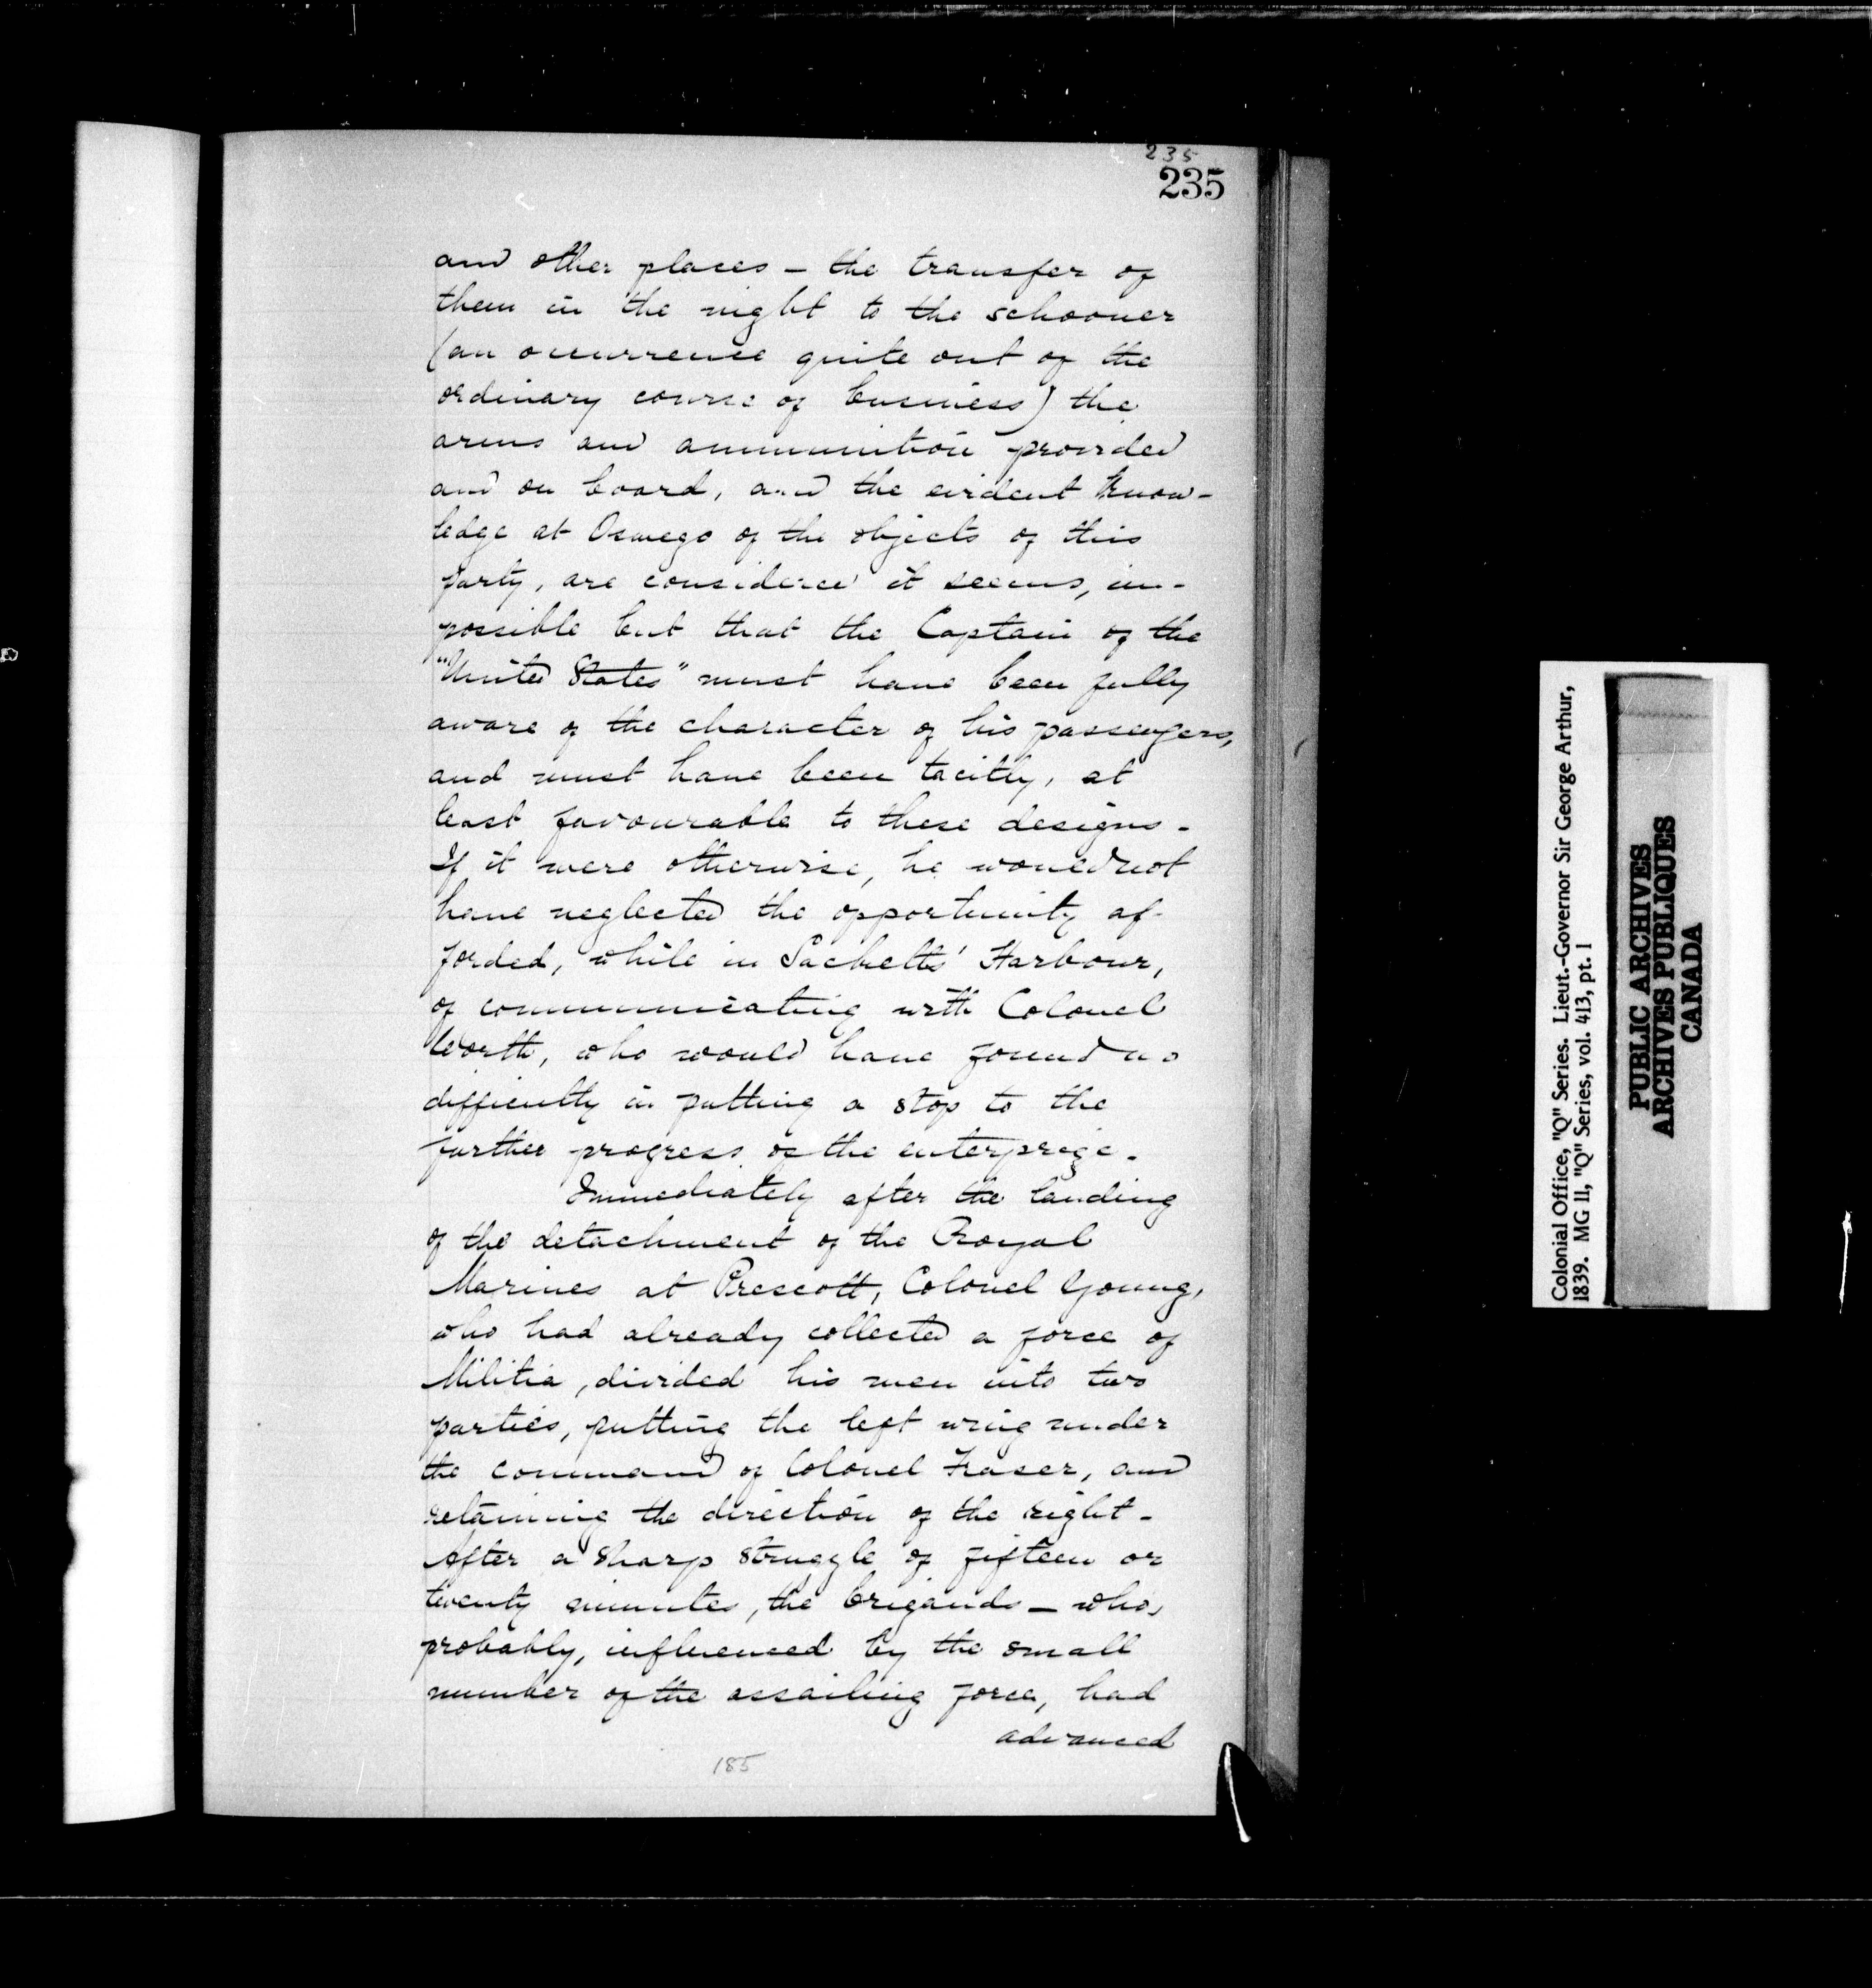 235
235
and other places — the transfer of
them in the night to the schooner
(an occurrence quite out of the
ordinary course of business) the
arms and ammunition provided
and on board, and the evident know-
ledge at Oswego of the objects of this
party, are considered it seems, im-
possible but that the Captain of the
"United States" must have been fully
aware of the character of his passengers,
and must have been tacitly, at
least favourable to these designs -
If it were otherwise, he would not
have neglected the opportunity af-
forded, while in Sacketts' Harbour,
of communicating with Colonel
Worth, who would have found no
difficulty in putting a stop to the
further progress of the enterprize.
Immediately after the landing
of the detachment of the Royal
Marines at Prescott, Colonel Young,
who had already collected a force of
Militia, divided his men into two
parties, putting the left wing under
the command of Colonel Fraser, and
retaining the direction of the right -
After a sharp struggle of fifteen or
twenty minutes, the brigands — who,
probably, influenced by the small
number of the assailing force, had
advanced
185
Colonial Office, "Q" Series. Lieut.-Governor Sir George Arthur,
1839. MG 11, "Q" Series, vol. 413, pt. 1
PUBLIC ARCHIVES
ARCHIVES PUBLIQUES
CANADA